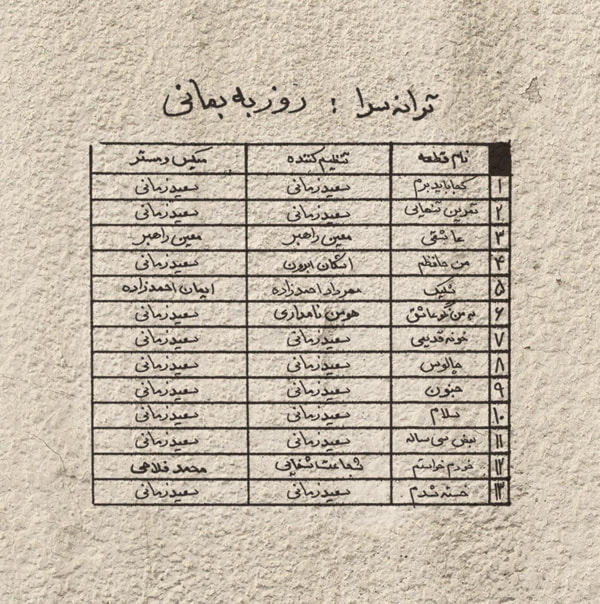 ترانه سرا : روزبه بمانی
نام قطعه تنظیم کننده میکس و مستر
۱ کجا باید برم سعید زمانی سعید زمانی
۲ تمرین تنهایی سعید زمانی سعید زمانی
۳ عاشقی معین راهبر معین راهبر
۴ من حافظم اشکان آبرون سعید زمانی
۵ شلیک مهرداد احمدزاده ایمان احمدزاده
۶ به من نگو عاشق هومن نامداری سعید زمانی
۷ خونه قدیمی سعید زمانی سعید زمانی
۸ چالوس سعید زمانی سعید زمانی
۹ جنون سعید زمانی سعید زمانی
۱۰ سلام سعید زمانی سعید زمانی
۱۱ نبض سی ساله سعید زمانی سعید زمانی
۱۲ خودم خواستم شجاعت شفایی محمد فلاحی
۱۳ خسته شدم سعید زمانی سعید زمانی